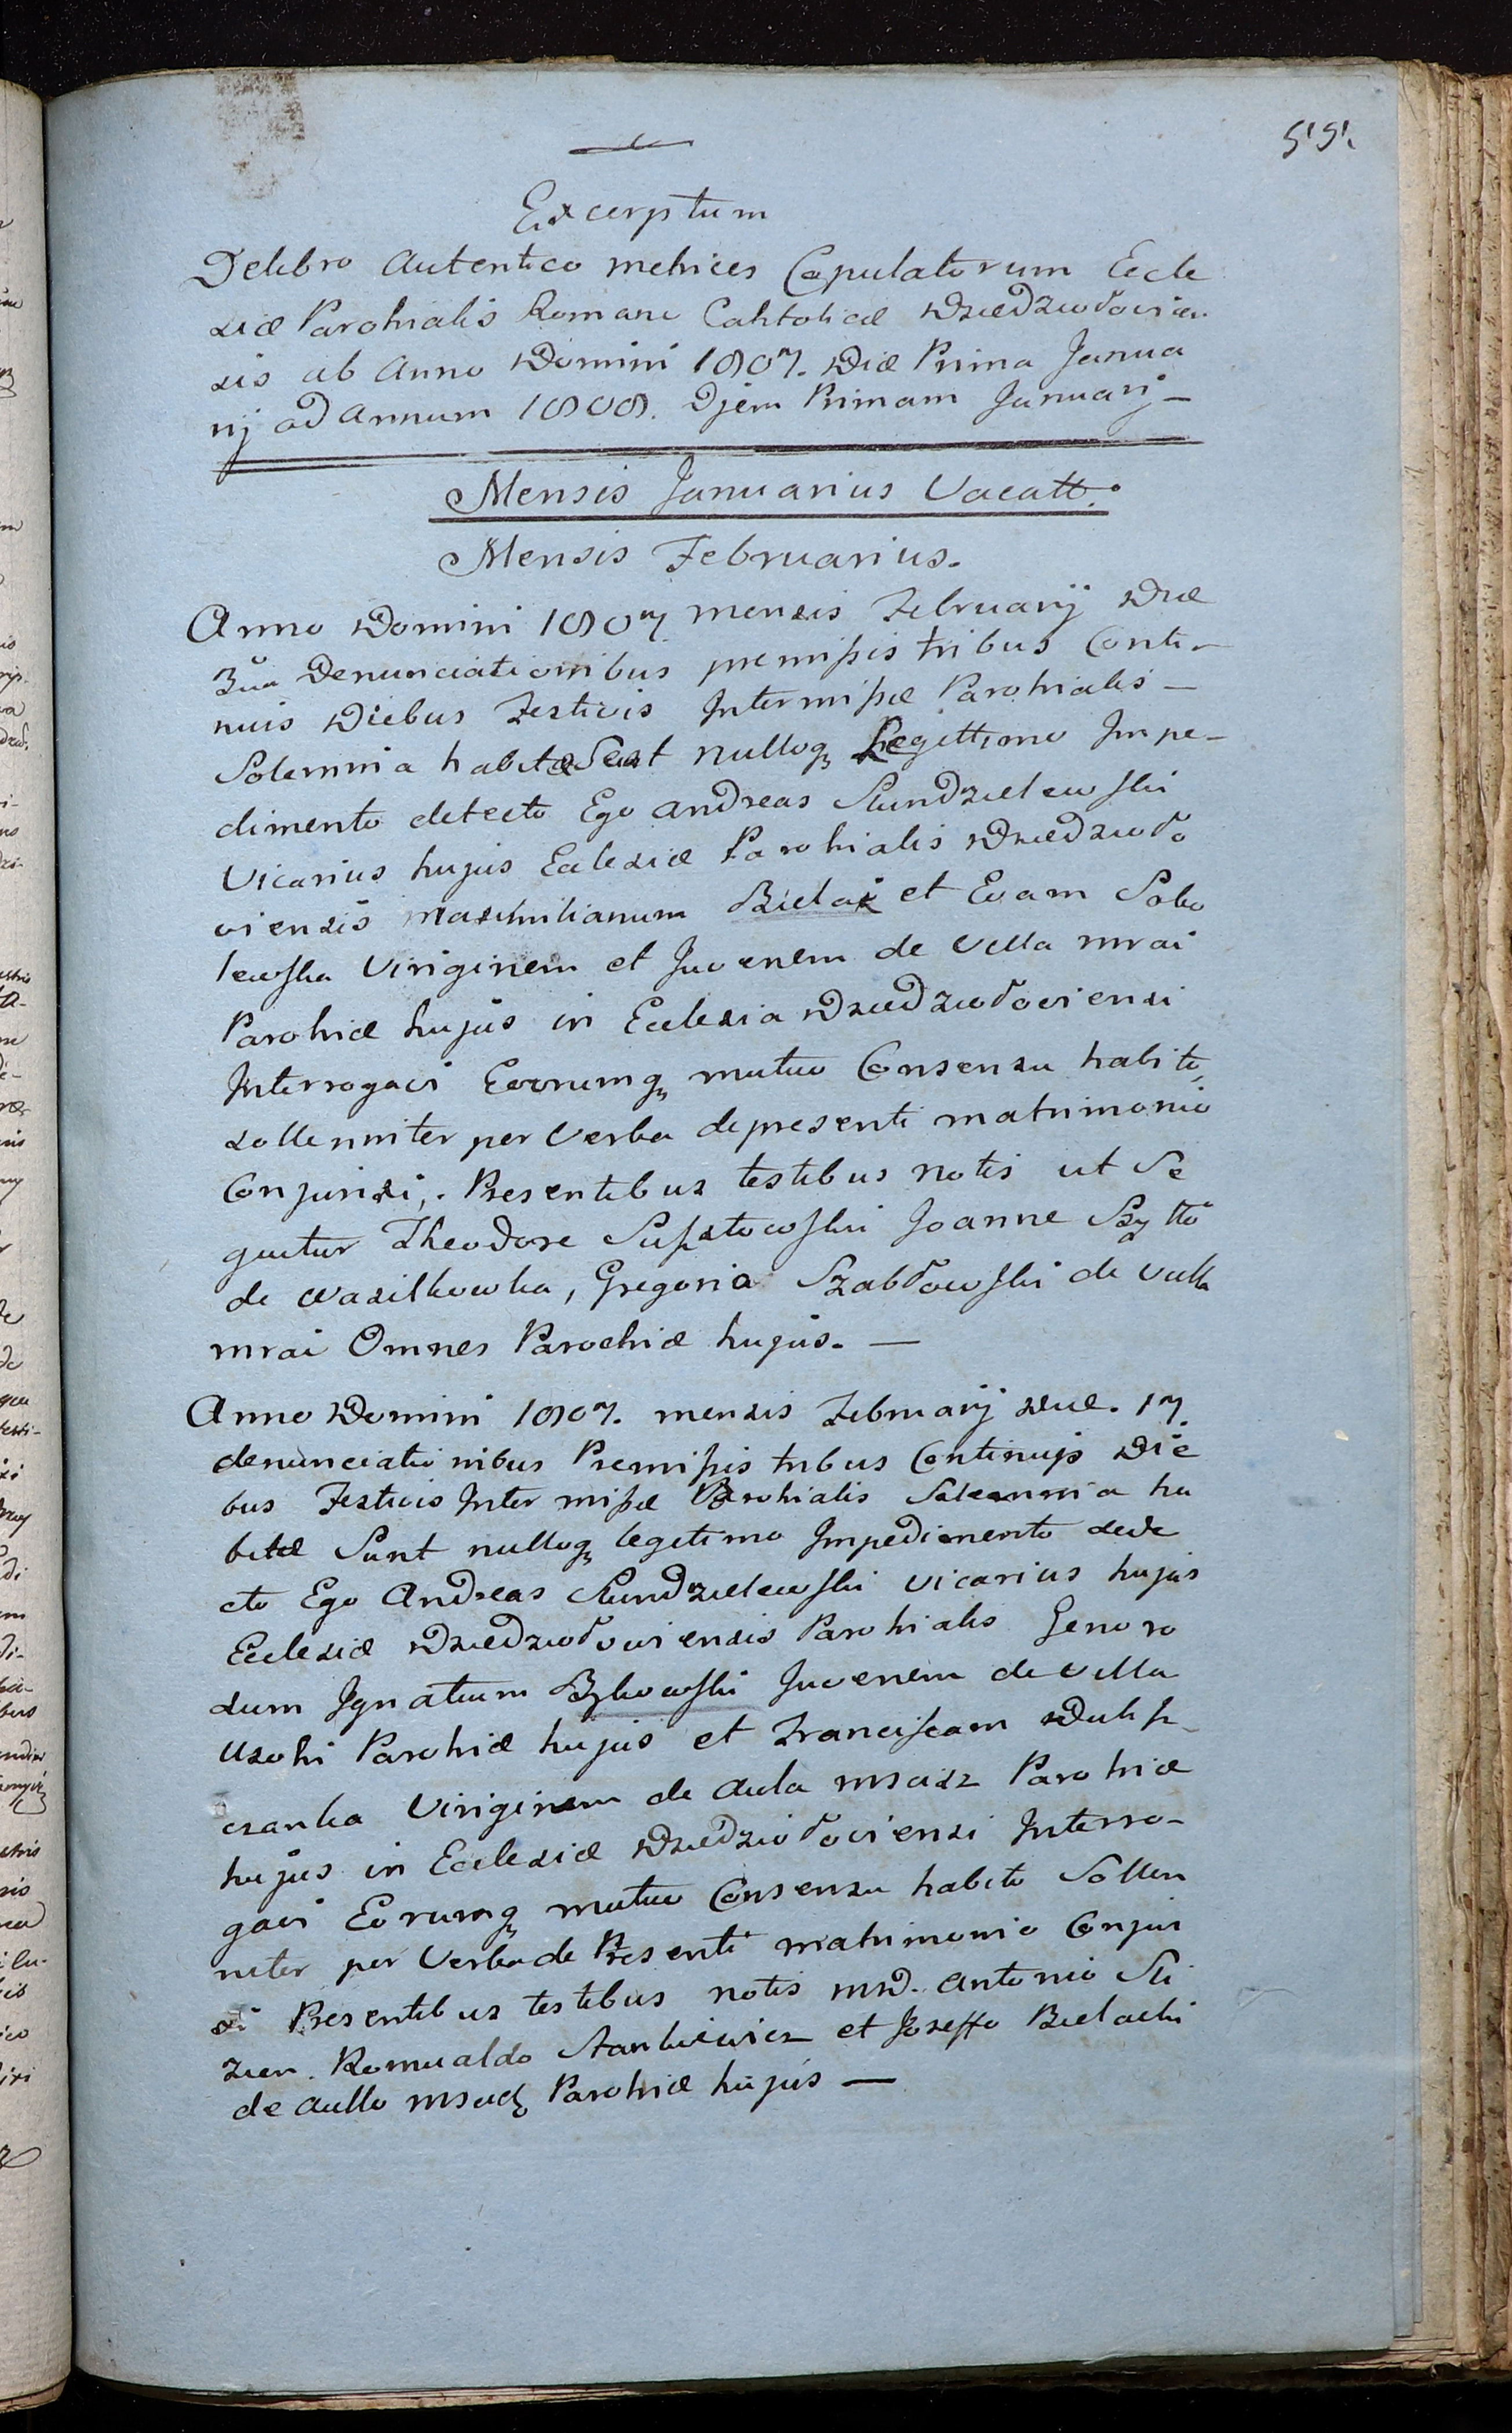 55.
Excerptum
De libro Autentico metrices Copulatorum Eccle
siæ Parohialis Romane Cahtolicæ Dziedziołovien
sis ab Anno Domini 1807. Diæ Prima Janua
rij ad Annum 1808. Djem Primam Januarij
Mensis Januarius Vacatt.
Mensis Februarius.
Anno Domini 1807 mensis Februarij Diæ
3tia Denunciationibus premißis tribus Conti-
nuis Diebus Festivis Intermißæ Parohialis
Solemnia habitæ Sunt nulloq Legittimo Impe-
dimento detecto Ego Andreas Skundzielewski
Vicarius hujus Eclesiæ Parohialis Dziedzioło
viensis Maximilianum Bielak et Evam Sobo
lewska Viriginem et Juvenem de Villa mrai
Parohiæ hujus in Eclesia Dziedziołoviensi
Interrogavi Eorrumq mutuo Consensu habito
sollenniter per Verba de presenti matrimonio
Conjunxi, Presentibus testibus notis ut Se
guitur Theodore Joanne Szytto
de Wasilkowka, Gregorio Szabłowski de Villa
mrai Omnes Parochiæ hujus.
Anno Domini 1807. mensis Februarij Diæ. 17.
denunciationibus Premißis tribus Continujs Die
bus Festivis Inter mißæ Parohialis Solemnia ha
bitæ Sunt nulloq legitimo Impedimento dete
cto Ego Andreas Skundzielewski vicarius hujus
Eclesiæ Dziedziołoviensis Parohialis Genoro
sum Ignatium Bykowski Juvenem de Villa
Uzohi Parohiæ hujus et Franciscam
czanka Viriginem de Aula Parohiæ
hujus in Eclesiæ Dziedziołoviensi Interro-
gavi Eorumq mutuo Consensu habito Sollen
niter per Verba de Presenti matrimonio Conjun
xi Presentibus testibus notis Antonio
Romualdo Stankiewicz et Joseffo Bielacki
de Aullo Parohiæ hujus